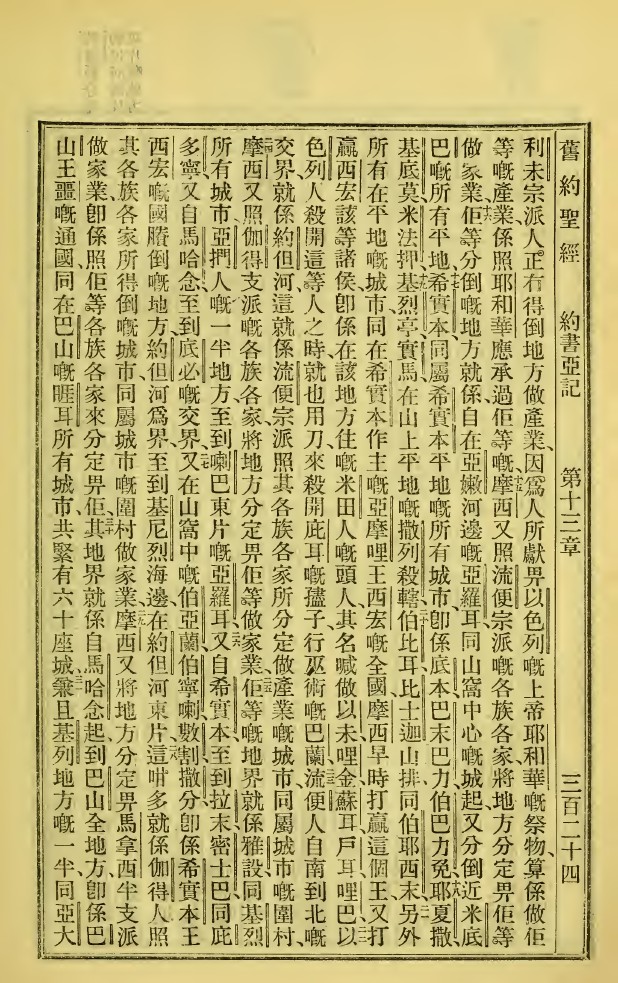 舊約聖經 約書亞記 第十三章 三百二十四
利未宗派人正冇得倒地方做產業、因爲人所獻畀以色列嘅上帝耶和華嘅祭物算係做佢
等嘅產業、係照耶和華應承過佢等嘅、十五摩西又照流便宗派嘅各族各家將地方分定畀佢等
做家業、十六佢等分倒嘅地方就係自在亞嫩河邊嘅亞羅耳同山窩中心嘅城起又分倒近米底
巴嘅所有平地、十七希實本、同屬希實本平地嘅所有城市、卽係底本巴末巴力伯巴力免、十八耶夏撒、
基底莫、米法押、十九基烈亭、實馬、在山上平地嘅撒列殺轄、二十伯比耳、比士迦山排、同伯耶西末、二一另外
所有在平地嘅城市、同在希實本作主嘅亞摩哩王西宏嘅全國、摩西早時打贏這個王、又打
贏西宏該等諸侯、卽係在該地方住嘅米田人嘅頭人、其名喊做以未哩金蘇耳戶耳哩巴、二二以
色列人殺開這等人之時、就也用刀來殺開庇耳嘅孻子行巫術嘅巴蘭、二三流便人自南到北嘅
交界就係約但河、這就係流便宗派照其各族各家所分定做產業嘅城市、同屬城市嘅圍村、
二四摩西又照伽得支派嘅各族各家將地方分定畀佢等做家業、二五佢等嘅地界就係雅設同基烈
所有城市、亞捫人嘅一半地方、至到喇巴東片嘅亞羅耳、二六又自希實本至到拉末密士巴、同庇
多寧、又自馬哈念至到底必嘅交界、二七又在山窩中嘅伯亞蘭、伯寧喇、數割、撒分、卽係希實本王
西宏嘅國賸倒嘅地方、約但河爲界、至到基尼烈海邊、在約但河東片、二八這咁多就係伽得人照
其各族各家所得倒嘅城市、同屬城市嘅圍村做家業、二九摩西又將地方分定畀馬拿西半支派
做家業、卽係照佢等各族各家來分定畀佢、三十其地界就係自馬哈念起到巴山全地方、卽係巴
山王噩嘅通國、同在巴山嘅睚耳所有城市、共緊有六十座城、三一兼且基列地方嘅一半、同亞大